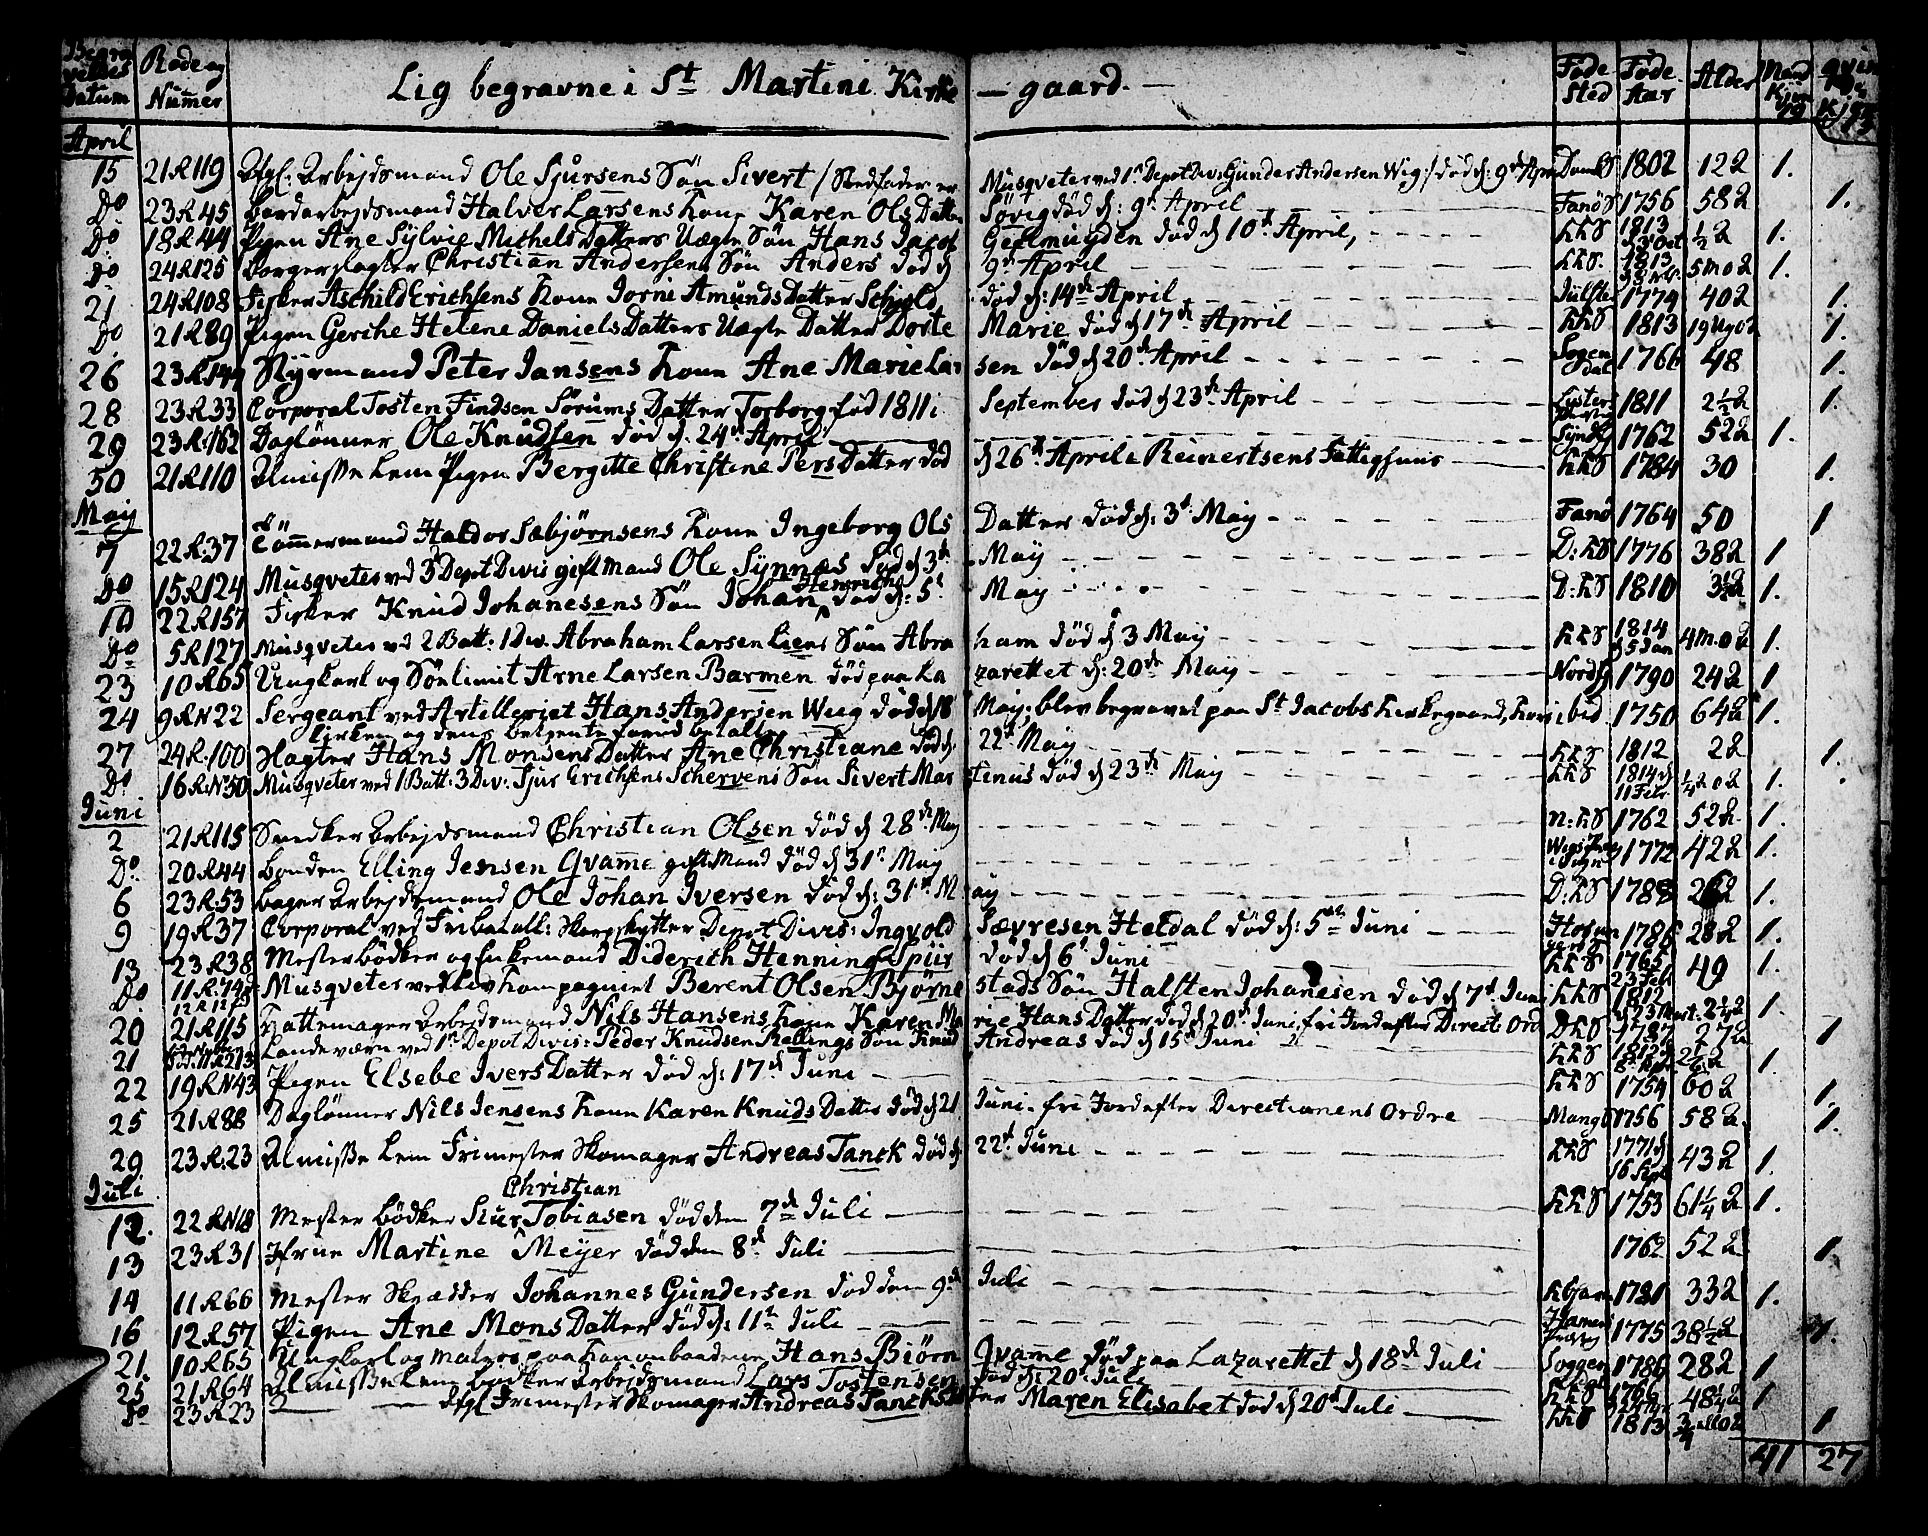 Begravelses Datum | Rode og Numer | Lig begravne i St Martini Kirke — gaard. — | Føde Sted | Føde Aar | Alder | Mand Kjøn | Qvinde Kjøn
April
15 | 21R119 | Afgl: Arbejdsmand Ole Sjursens Sön Sivert / Stedfader er Musqveter ved 1st Depot Div: Gunder Andersen Wig:/ død d: 9de Apr | 1802 | 12 | 1.
Do | 23R45 | Bordarbejdsmand Halver Larsens Kone Karen Ols Datter Søvig død d: 9de April | Fanø S | 1756 | 58 | 1.
Do | 18R44 | Pigen Ane Sylvie Michels Datters Uægte Sön Hans Jacob Geelmuyden død d 10de April, | KKS | 1813 | ½ | 1.
Do | 24R125 | Borgerslagter Christian Andersens Sön Anders død d 9de April | KKS. | 1813 | 5 mo | 1.
21 | 24R108 | Fisker Aschild Erichsens Kone Jorni Amunds Datter Schjold død d: 14de April | Jülster | 1774 | 40 | 1.
Do | 21R89 | Pigen Gerche Helene Daniels Datters Uægte Datter Dorte Marie død d 17de April | KKS | 1813 | 19 Ug | 1.
26 | 23R144 | Styrmand Peter Jansens Kone Ane Marie Larsen død d 20de April | Sogendal | 1766 | 48 | 1.
28 | 23R33 | Corporal Tosten Findsen Sørums Datter Torborg fød 1811 i September død d 23de April | Lyster | 1811 | 2½ | 1.
29 | 23R162 | Daglönner Ole Knudsen død d. 24de April | 1762 | 52 | 1.
30 | 21R110 | Almisse Lem Pigen Bergitte Christine Pers Datter død d 26de April i Reinertsens Fattighuus | KKS | 1784 | 30 | 1.
May
7 | 22R.37 | Tömmermand Haldor Sæbjørnsens Kone Ingeborg Ols Datter død d: 3de May | Fanø | 1764 | 50 | 1
Do | 15R124 | Musqveter ved 3 Depot Divis gift Mand Ole Synnæs død d 3de May | D:KS | 1776 | 38 | 1
10 | 22R157 | Fisker Knud Johanesens Sön Johan Henrich død d: 5t May | D:KS | 1810 | 3½ | 1.
Do | 5R127 | Musqveter ved 2 Batt: 1 Div. Abraham Larsen Liens Sön Abraham død d 3 May | KKS | 1814 d 5 Jan | 4 m. | 1.
23 | 10R65 | Ungkarl og Sölimit Arne Larsen Barmen død paa Lazarettet d: 20de May | Nordfj | 1790 | 24 | 1
24 | 9RN22 | Sergeant ved Artilleriet Hans Andersen Wiig død d 18 May, blev begravet paa St Jacobs Kirkegaard, | ibid | 1750 | 64 | 1.
27 | 24R.100 | Slagter Hans Monsens Datter Ane Christiane død d. 22de May | KKS | 1812 | 2 | 1.
Do | 16RN.50 | Musqveter ved 1 Batt: 3 Div. Sjur Erichsens Schervens Sön Sivert Martinus død d 23de May | KKS | 1814 d 11 Febr. | ¼ | 1.
Juni
2 | 21R115 | Snedker Arbejdsmand Christian Olsen død d 28de May | N:KS | 1762 | 52 | 1.
Do | 20R44 | Bonden Elling Jensen Qvame gift Mand død d 31t May | 1772 | 42 | 1.
6 | 23R.53 | Bager Arbejdsmand Ole Johan Iversen død d: 31te May | D:KS | 1788 | 26 | 1.
9 | 19R.37 | Corporal ved Fribatall: Skarpskytter Depot Divis: Ingvold Sævresen Heldal død d: 5te Juni | 1786 | 28 | 1.
13 | 23R38 | Mester Bödker og Enkemand Diderich Henning Spür død d 6t Juni | KKS | 1765 23 Feb | 49 | 1.
Do | 11R.74 | Musqveter ved Livkompagniet Berent Olsen Bjørnestads Sön Halsten Johanesen død d 7de Juni | KKS | 1812 | 2¼ | 1.
20 | 21R115 | Hattemager Arbejdsmand Nils Hansens Kone Karen Marie Hans Datter død d 20de Juni, fri Jord efter Direct Ord | DKS | 1787 | 27 | 1
21 | Landeværn ved 1st Depot Divis: Peder Knudsen Rellings Sön Knud Andreas død d 15de Juni | KKS | 1812 | 1.
22 | 19RN43 | Pigen Elsebe Ivers Datter død d: 17de Juni | KKS | 1754 | 60 | 1.
25 | 21R88 | Daglönner Nils Jensens Kone Karen Knuds Datter død d 21 Juni. fri Jord efter Directionens Ordre | Mang | 1756 | 58 | 1.
29 | 23R.23 | Almisse Lem Frimester Skomager Andreas Tanck død d 22de Juni | KKS | 1771 d 16 Sept | 43 | 1.
Juli
12. | 22RN18 | Mester Bödker Siur Christian Tobiasen død den 7de Juli | KKS | 1753 | 61¼ | 1.
13 | 23R31 | Frue Martine Meyer død den 8de Juli | 1762 | 52 | 1.
14 | 11R66 | Mester Skrædder Johannes Gundersen død den 9de Juli | 1781 | 33 | 1.
16 | 12R57 | Pigen Ane Mons Datter død d: 11te Juli | 1775 | 38½ | 1.
21. | 10R65 | Ungkarl og Matros paa Kanonbaadene Hans Biørn Qvame død paa Lazarettet d 18de Juli | Soggen | 1786 | 28 | 1
25. | 21R64 | Almisse Lem Bødker Arbejdsmand Lars Tostensen død d: 20de Juli | KKS | 1766 | 48¼ | 1
Do | 23R23 | Afgl Frimester Skomager Andreas Tancks Datter Maren Elisabet død d 20de Juli | KKS | 1813 | ¾ | 1
41 | 27